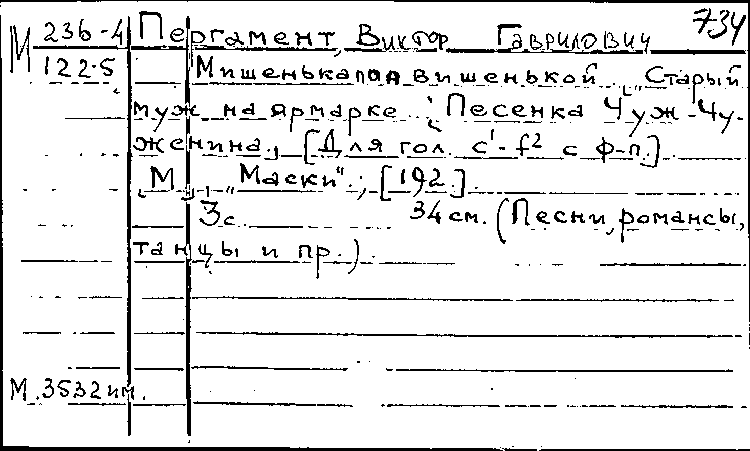 734
М 236-4 Пергамент, Виктор Гаврилович
122.5 Мишенька под вишенькой. „Старый
муж на ярмарке". Песенка Чуж-Чу-
женина, [Для гол. c¹-f² с ф-п.]
„М", „Маски", [192.]
3с. 34см. (Песни, романсы,
танцы и пр.)
М.3532им.